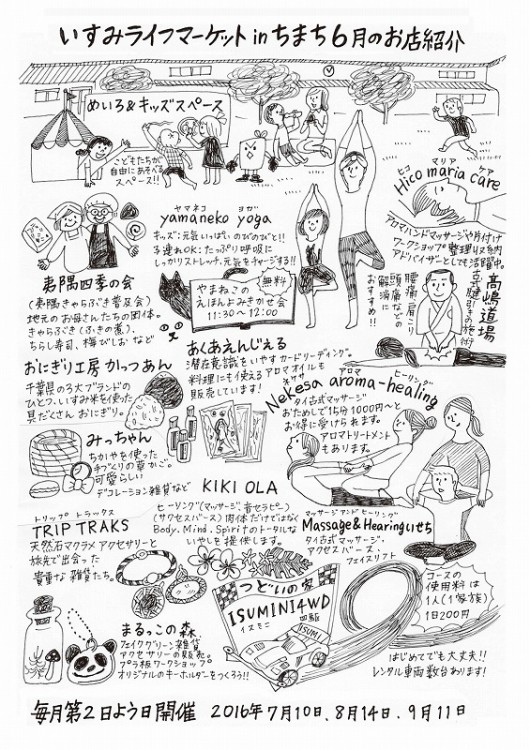 いすみライフマーケット in ちまち 6月のお店紹介
めいろ&キッズスペース
こどもたちが
自由にあそべる
スペース!!
ヤマネコ ヨガ
yamaneko yoga
キッズ:元気いっぱい のびのびと!!
子連れOK:たっぷり呼吸に
しっかりストレッチ、元気をチャージする!!
ヒコ マリア ケア
Hico maria care
アロマハンドマッサージや片付け
ワークショップ 整理収納
アドバイザーとして活躍中。
夷隅四季の会
(夷隅きゃらぶき普及会)
地元のお母さんたちの団体。
きゃらぶき(ふきの煮)、
ちらし寿司、梅びしお など
無料
やまねこの
えほんよみきかせ会
11:30〜12:00
髙嶋道場
腰痛 肩こり
頭痛などの
解消に
おすすめ!!
おにぎり工房 かっつあん
千葉県の3大ブランドの
ひとつ、いすみ米を使った
具だくさん おにぎり。
あくあえんじぇる
潜在意識をいやす カードリーディング。
料理にも使える アロマオイルも
販売しています!
ネケサ アロマ ヒーリング
Nekesa aroma-healing
タイ古式マッサージ
おためしで15分1000円〜と
お得に受けられます。
アロマトリートメント
もあります。
みっちゃん
ちがやを使った
手づくりの草かご。
可愛らしい
デコレーション雑貨など
KIKI OLA
ヒーリング(マッサージ、音セラピー)
(アクセスバース) 肉体だけではなく
Body, Mind, Spiritのトータルな
いやしを提供します。
トリップ トラックス
TRIP TRAKS
天然石マクラメ アクセサリーと
旅先で出会った
貴重な雑貨たち。
マッサージ アンド ヒーリング
Massage&Hearingいせち
タイ古式マッサージ・
アクセスバース・
フェイスリフト
つどいの家
ISUMINI4WD
イスミニ 四駆
ISUMI
コースの
使用料は
1人(1家族)
1日200円
はじめてでも大丈夫!!
レンタル車両数台あります!
まるっこの森
フェイクグリーン雑貨
アクセサリーの販売。
プラ板ワークショップ。
オリジナルのキーホルダーをつくろう!!
毎月第2日よう日開催 2016年7月10日、8月14日、9月11日